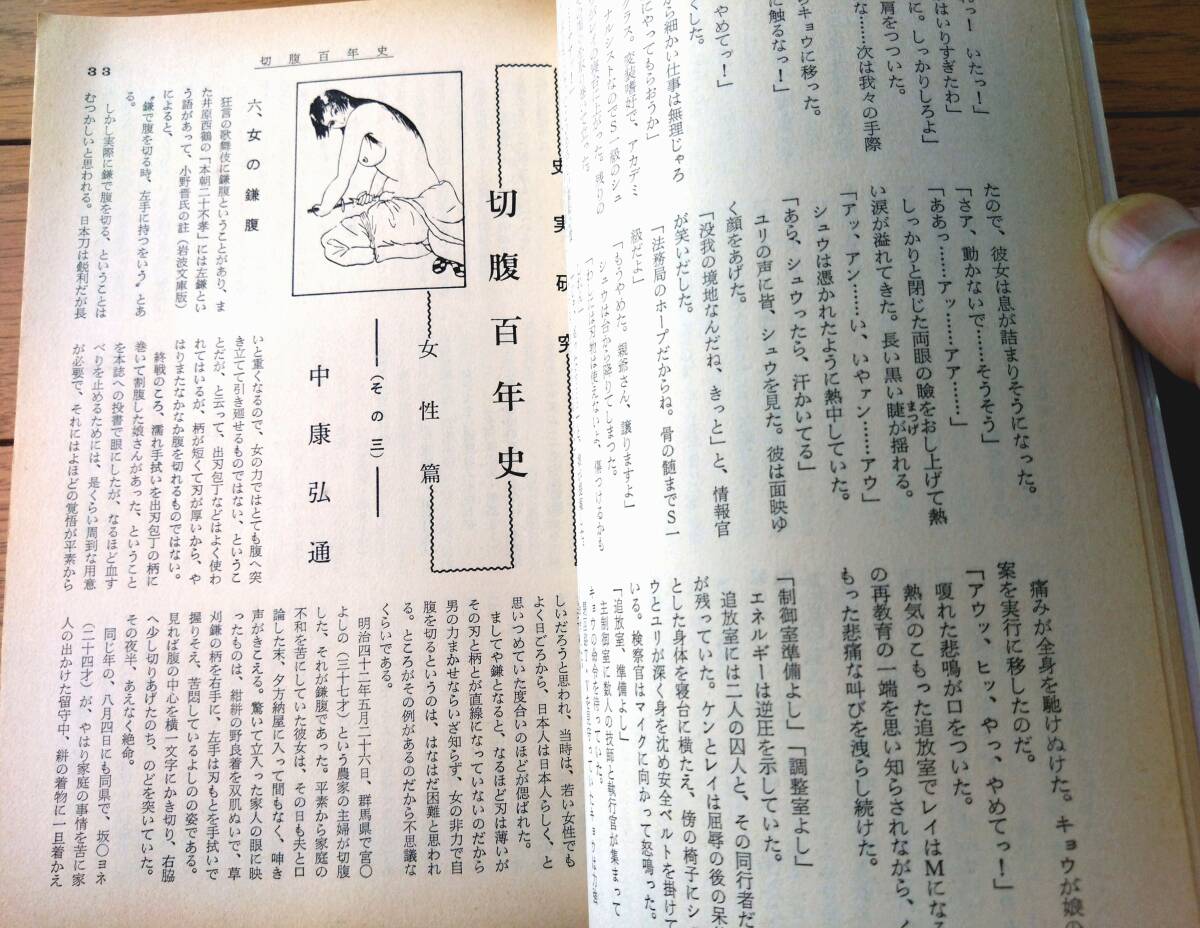 っ！　いたっ！」
はいりすぎたわ」
に。しっかりしろよ」
肩をつついた。
な……次は我々の手際
キョウに移った。
に触るなっ！」
やめてっ！」
くした。
から細かい仕事は無理じゃろ
にやってもらおうか」
たので、彼女は息が詰まりそうになった。
「さア、動かないで……そうそう」
「ああっ……アッ……アア……」
しっかりと閉じた両眼の瞼をおし上げて熱
い涙が溢れてきた。長い黒い睫が揺れる。
まつげ
「アッ、アン……い、いやァン……アウ」
シュウは憑かれたように熱中していた。
「あら、シュウったら、汗かいてる」
ユリの声に皆、シュウを見た。彼は面映ゆ
く顔をあげた。
「没我の境地なんだね、きっと」と、情報官
が笑いだした。
「法務局のホープだからね。骨の髄までＳ一
級だよ」
「もうやめた。親爺さん、譲りますよ」
シュウは台から降りてしまった。
痛みが全身を馳けぬけた。キョウが娘の
案を実行に移したのだ。
「アウッ、ヒッ、やっ、やめてっ！」
嗄れた悲鳴が口をついた。
熱気のこもった追放室でレイはＭになる
の再教育の一端を思い知らされながら、く
もった悲痛な叫びを洩らし続けた。
「制御室準備よし」「調整室よし」
エネルギーは逆圧を示していた。
追放室には二人の囚人と、その同行者だ
が残っていた。ケンとレイは屈辱の後の呆
とした身体を寝台に横たえ、傍の椅子にシ
ウとユリが深く身を沈め安全ベルトを掛けて
いる。検察官はマイクに向かって怒鳴った。
「追放室、準備よし」
主制御室に数人の技師と執行官が集まって
切腹百年史
33
史実研究
切腹百年史
女性篇
――（その三）――
中康弘通
六、女の鎌腹
狂言の歌舞伎に鎌腹ということがあり、ま
た井原西鶴の「本朝二十不孝」には左鎌とい
う語があって、小野晋氏の註（岩波文庫版）
によると、
〝鎌で腹を切る時、左手に持つをいう〟とあ
る。
しかし実際に鎌で腹を切る、ということは
むつかしいと思われる。日本刀は鋭利だが長
いと重くなるので、女の力ではとても腹へ突
き立てて引き廻せるものではない、というこ
とだが、と云って、出刃包丁などはよく使わ
れてはいるが、柄が短くて刃が厚いから、や
はりまたなかなか腹を切れるものではない。
終戦のころ、濡れ手拭いを出刃包丁の柄に
巻いて割腹した娘さんがあった、ということ
を本誌への投書で眼にしたが、なるほど血す
べりを止めるためには、是くらい周到な用意
が必要で、それにはよほどの覚悟が平素から
しいだろうと思われ、当時は、若い女性でも
よく日ごろから、日本人は日本人らしく、と
思いつめていた度合いのほどが偲ばれた。
ましてや鎌となると、なるほど刃は薄いが
その刃と柄とが直線になっていないのだから
男の力まかせならいざ知らず、女の非力で自
腹を切るというのは、はなはだ困難と思われ
る。ところがその例があるのだから不思議な
くらいである。
明治四十二年五月二十六日、群馬県で宮〇
よしの（三十七才）という農家の主婦が切腹
した、それが鎌腹であった。平素から家庭の
不和を苦にしていた彼女は、その日も夫と口
論した末、夕方納屋に入って間もなく、呻き
声がきこえる。驚いて立入った家人の眼に映
ったものは、紺絣の野良着を双肌ぬいで、草
刈鎌の柄を右手に、左手は刃もとを手拭いで
握りそえ、苦悶しているよしのの姿である。
見れば腹の中心を横一文字にかき切り、右脇
へ少し切りあげたのち、のどを突いていた。
その夜半、あえなく絶命。
同じ年の、八月四日にも同県で、坂〇ヨネ
（二十四才）が、やはり家庭の事情を苦に家
人の出かけた留守中、絣の着物に一旦着かえ